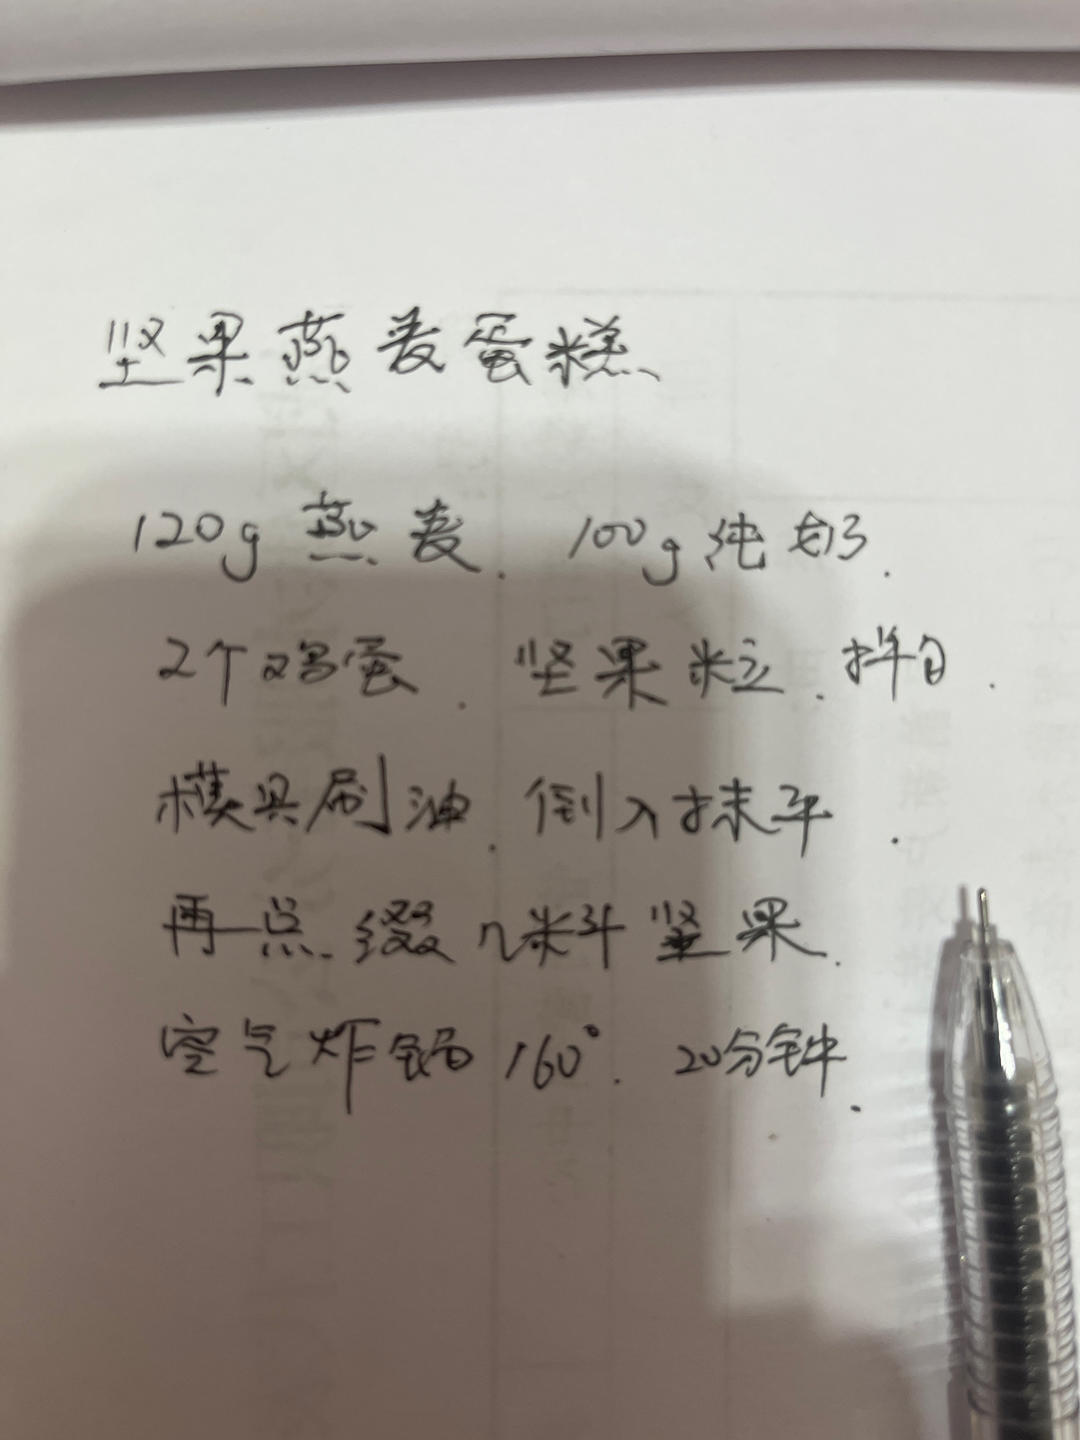 坚果燕麦蛋糕
120g燕麦. 100g纯奶.
2个鸡蛋. 坚果粒. 拌匀.
模具刷油. 倒入抹平.
再点缀几料坚果.
空气炸锅160°. 20分钟.